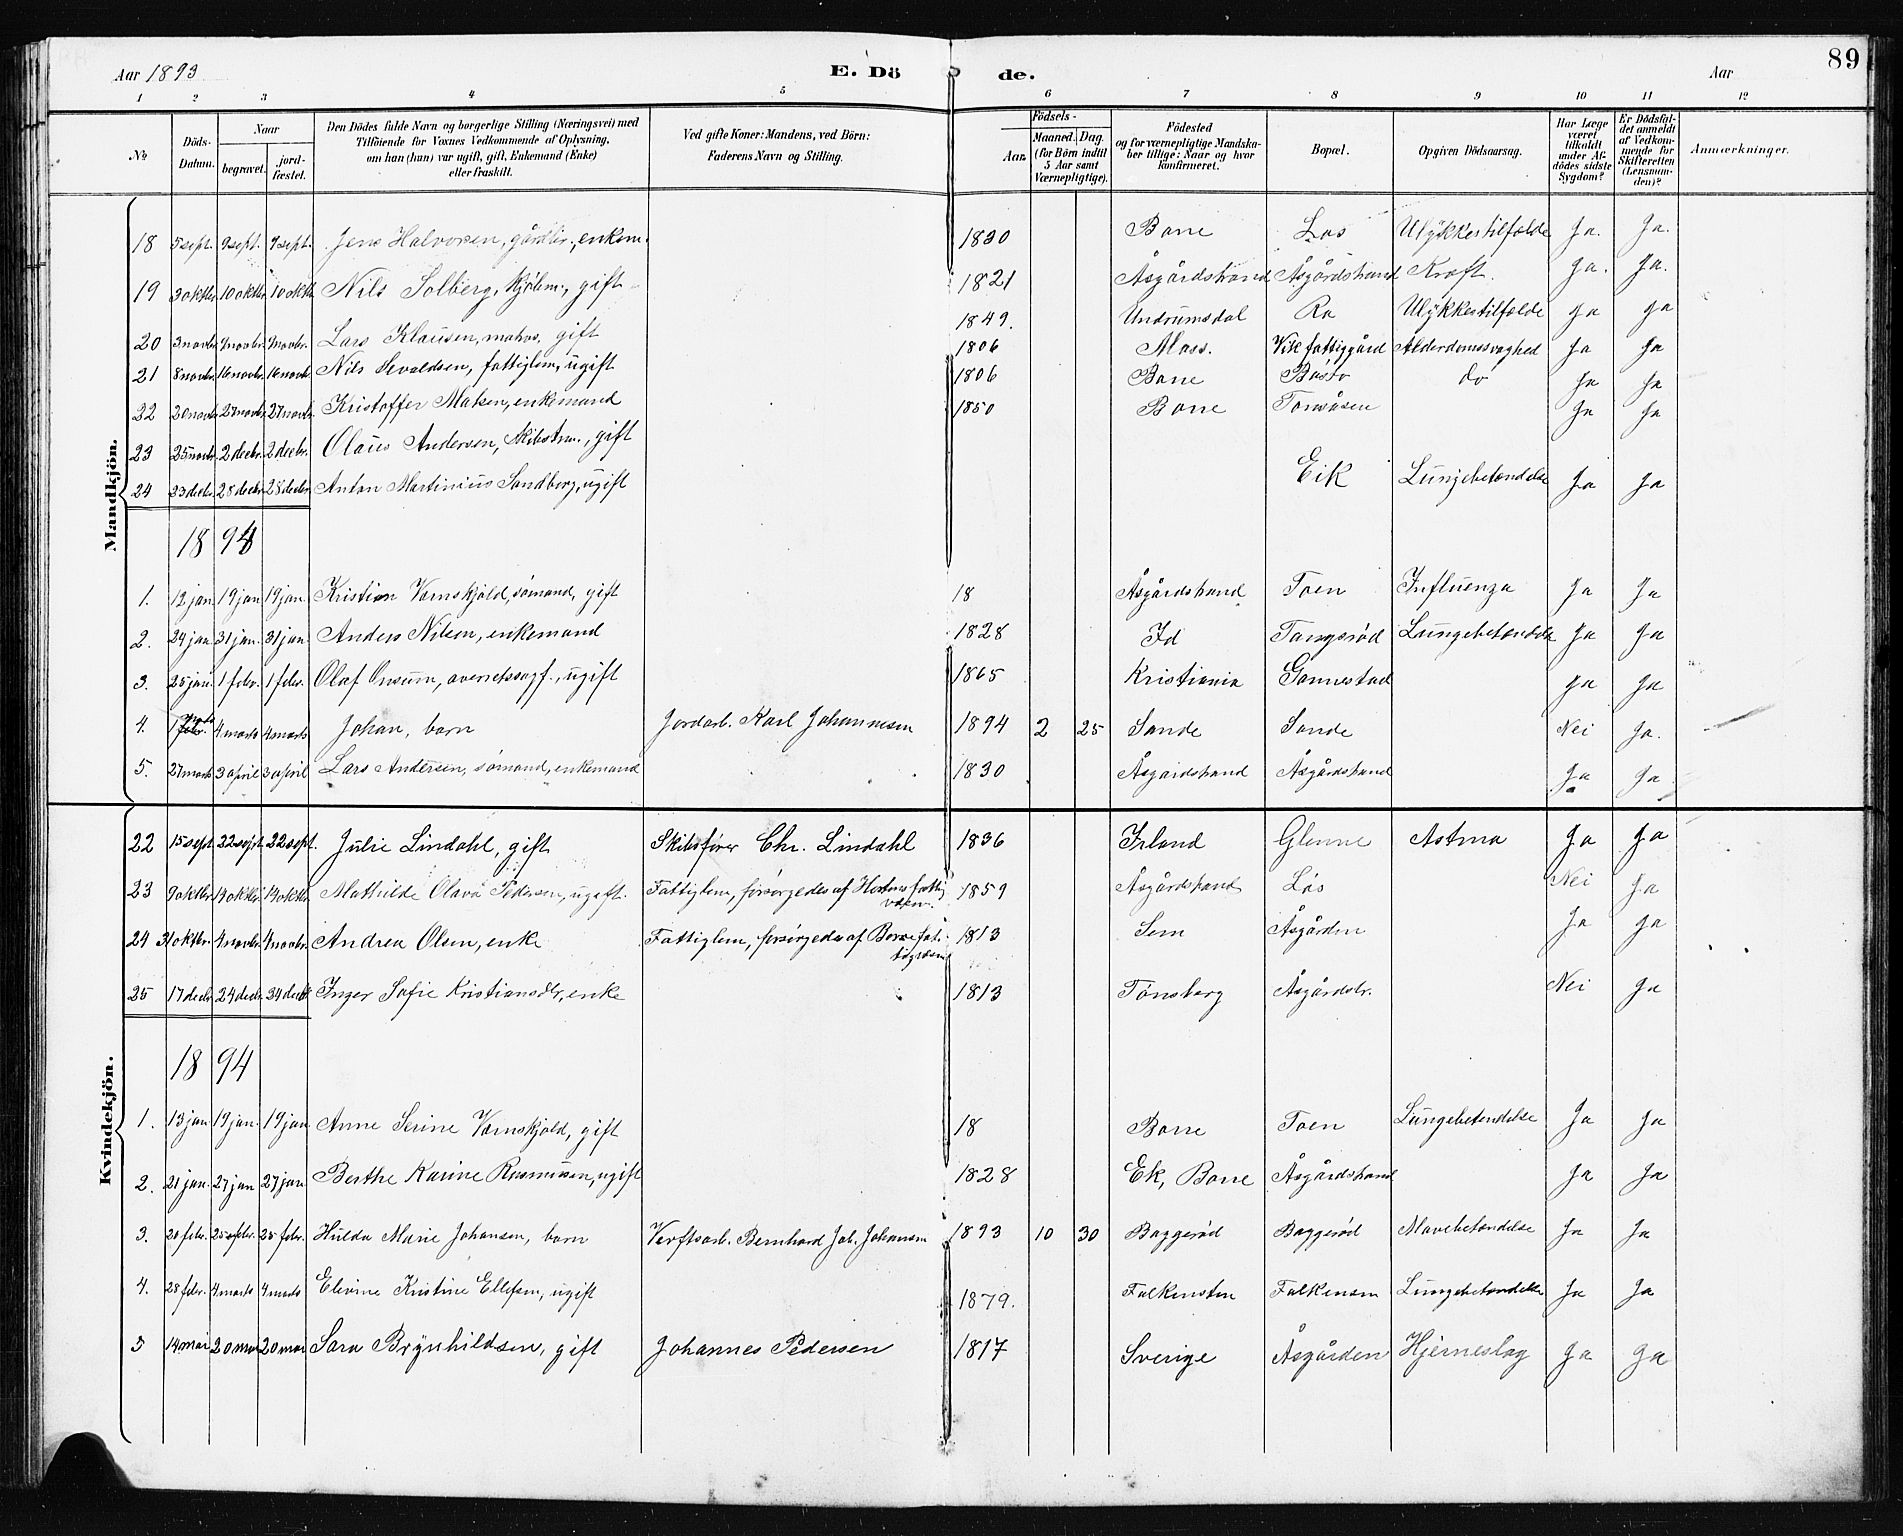 89
Aar 1893 E. Dö de. Aar
1 2 3 4 5 6 7 8 9 10 11 12
No. Döds-Datum. Naar begravet. jord-fæstet. Den Dödes fulde Navn og borgerlige Stilling (Næringsvei) med Tilföiende for Voxnes Vedkommende af Oplysning, om han (hun) var ugift, gift, Enkemand (Enke) eller fraskilt. Ved gifte Koner: Mandens, ved Börn: Faderens Navn og Stilling. Födsels- Aar. Maaned. Dag. (for Börn indtil 5 Aar samt Værnepligtige). Födested og for værnepligtige Mandskaber tillige: Naar og hvor konfirmeret. Bopæl. Opgiven Dödsaarsag. Har Læge været tilkaldt under Afdödes sidste Sygdom? Er Dödsfaldet anmeldt af Vedkommende for Skifteretten (Lensmanden)? Anmærkninger.
Mandkjön.
18 5 sept. 9 sept. 9 sept. Jens Halvorsen, gårdbr., enkem. 1830 Borre Løs Ulykkestilfælde Ja. Ja.
19 3 oktbr. 10 oktbr 10 oktbr Nils Solberg, kjølem., gift 1821 Åsgårdstrand Åsgårdstrand Kræft. Ja. Ja.
20 3 novbr. 9 novbr. 9 novbr. Lars Klausen, matros, gift 1849. Undrumsdal Ra Ulykkestilfælde Ja Ja
21 8 novbr. 16 novbr. 16 novbr. Nils Sevaldsen, fattiglem, ugift 1806 Moss. Vik fattiggård Alderdomssvaghed Ja Ja
22 20 novbr. 27 novbr. 27 novbr. Kristoffer Matsen, enkemand 1806 Borre Bastø do Ja Ja
23 25 novbr. 2 decbr. 2 decbr. Olaus Andersen, skibstm., gift 1850 Borre Tomsåsen Ja Ja
24 23 decbr. 28 decbr. 28 decbr. Anton Martinius Sandberg, ugift Eik Lungebetændelse Ja Ja
1894
1. 12 jan. 19 jan. 19 jan. Kristian Vornskjold, sømand, gift 18 Åsgårdstrand Toen Influenza Ja Ja
2. 24 jan. 31 jan. 31 jan. Anders Nilsen, enkemand 1828 Id Tangsrød Lungebetændelse Ja Ja
3. 25 jan. 1 febr. 1 febr. Olaf Onsum, overretssagf., ugift 1865 Kristiania Gannestad Ja Ja
4. 4 marts 4 marts Johan, barn Jordarb. Karl Johannesen 1894 2 25 Sande Sande Nei Ja.
5. 27 marts 3 april 3 april Lars Andersen, sømand, enkemand 1830 Åsgårdstrand Åsgårdstrand Ja Ja
Kvindekjön.
22 15 sept 22 sept 22 sept. Julie Lindahl, gift Skibsfører Chr. Lindahl 1836 Irland Glenne Astma Ja Ja
23 9 oktbr. 14 oktbr. 14 oktbr. Mathilde Olava Pedersen, ugift. Fattiglem, forsørgedes af Hortens fattigvæsen. 1859 Åsgårdstrand Løs Nei Ja
24 31 oktbr. 4 novbr. 4 novbr. Andrea Olsen, enke Fattiglem, forsørgedes af Borre fattigvæsen 1813 Sem Åsgården Ja Ja
25 17 decbr. 24 decbr. 24 decbr Inger Sofie Kristiansdtr, enke 1813 Tønsberg Åsgårdstr. Nei Ja
1894
1. 13 jan. 19 jan. 19 jan Anne Serine Vornskjold, gift 18 Borre Toen Lungebetændelse Ja Ja
2. 21 jan. 27 jan 27 jan Berthe Karine Rasmussen, ugift 1828 Ek, Borre Åsgårdstrand Ja Ja
3. 20 febr. 25 febr. 25 febr. Hulda Marie Johansen, barn Verftsarb. Bernhard Joh. Johansen 1893 10 30 Baggerød Baggerød Mavebetændelse Ja Ja
4. 28 febr. 4 marts 4 marts Elevine Kristine Ellefsen, ugift 1879. Falkensten Falkensten Lungebetændelse Ja Ja
5 14 mai 20 mai 20 mai Sara Brynhildsen, gift Johannes Pedersen 1817 Sverige Åsgården Hjerneslag Ja Ja